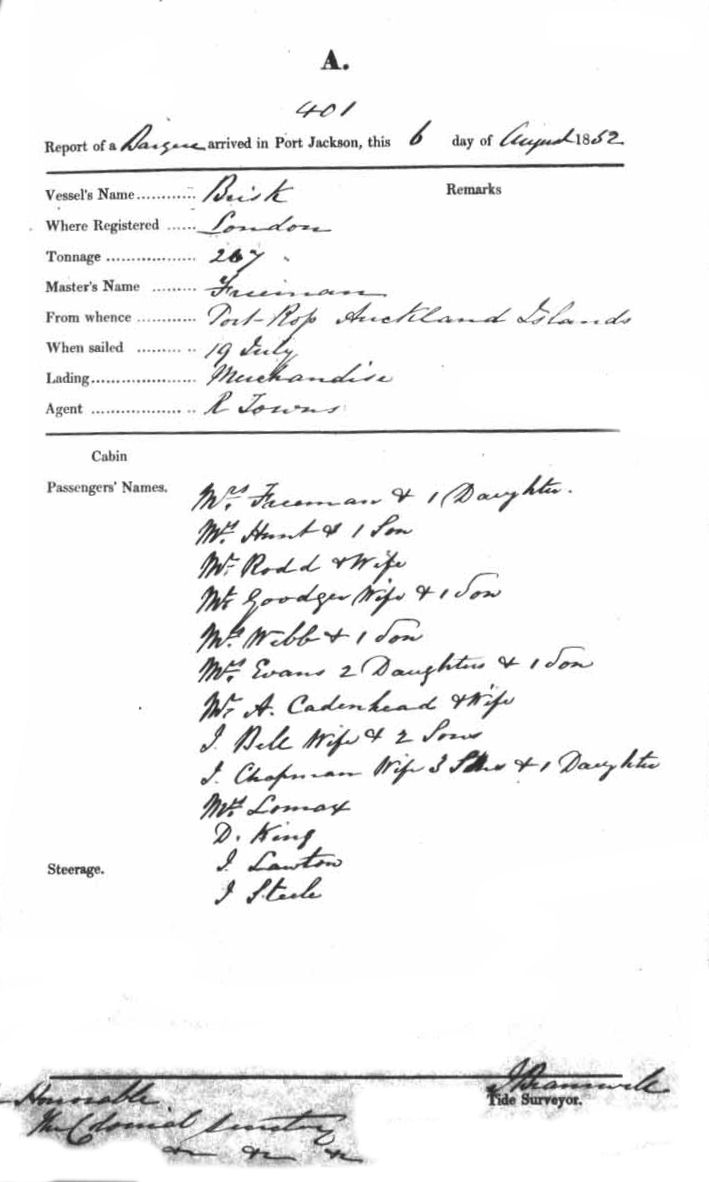 A.
401
Report of a Barque arrived in Port Jackson, this 6 day of August 1852
Vessel's Name ............ Brisk Remarks
Where Registered ...... London
Tonnage .................. 267
Master's Name ......... Freeman
From whence ............ Port Ross Auckland Islands
When sailed ......... .. 19 July
Lading..................... Merchandise
Agent ................ .. R Towns
Cabin
Passengers' Names. Mrs. Freeman & 1 Daughter.
Mrs. Hunt & 1 Son
Mr. Rodd & Wife
Mr. Goodger Wife & 1 Son
Mrs. Webb & 1 Son
Mrs. Evans 2 Daughters & 1 Son
Mr. A. Cadenhead & Wife
J. Bell Wife & 2 Sons
J. Chapman Wife 3 Sons & 1 Daughter
Mrs. Lomax
D. King
Steerage. J. Lawton
J Steele
J Bramwell
Tide Surveyor.
Honorable
The Colonial Secretary
&c &c &c